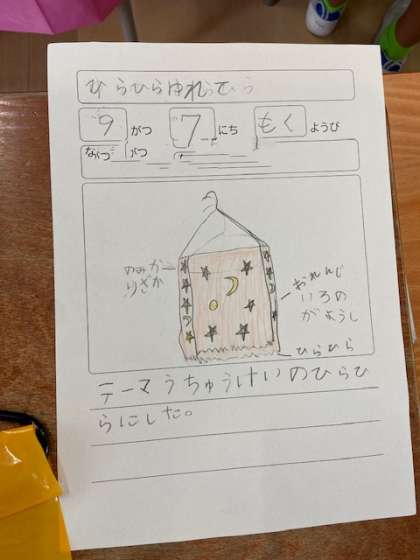 ひらひらゆれてる
9がつ 7にち もくようび
のみか
りざか
おれんじ
いろの
がようし
ひらひら
テーマうちゅうけいのひらひ
らにした。